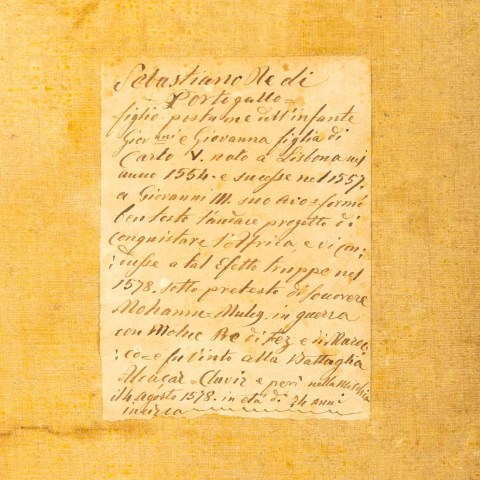 Sebastiano Re di
Portogallo =
figlio postumo dell'infante
Giovⁿⁿⁱ e Giovanna figlia di
Carlo V. nato a Lisbona nel
anno 1554. e sucesse nel 1557.
a Giovanni III. suo Avo = formò
ben teste l'audace progetto di
conquistare l'Africa, e vi con:
:dusse a tal Efetto truppe nel
1578. sotto pretesto di socorere
Mohanne = Muley. in guerra
con Moluc Re di Fez e di Maroc:
:co = e fu vinto alla Battaglia
Alcaçar = Quivir e perì nella
il 4 Agosto 1578. in età di 24 anni